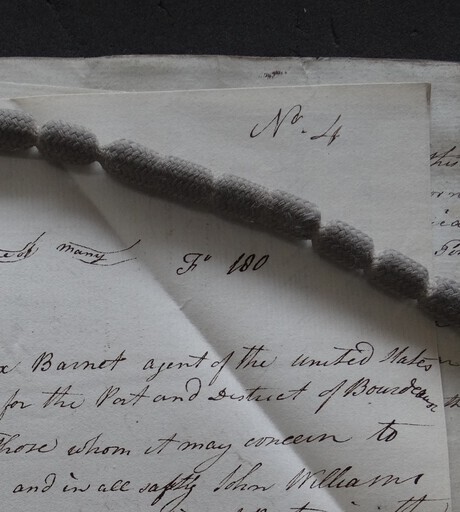 No. 4
this
many
Fo 180
Barnet agent of the united States
for the Port and District of Bourdeaux
Those whom it may concern to
and in all safty John Williams